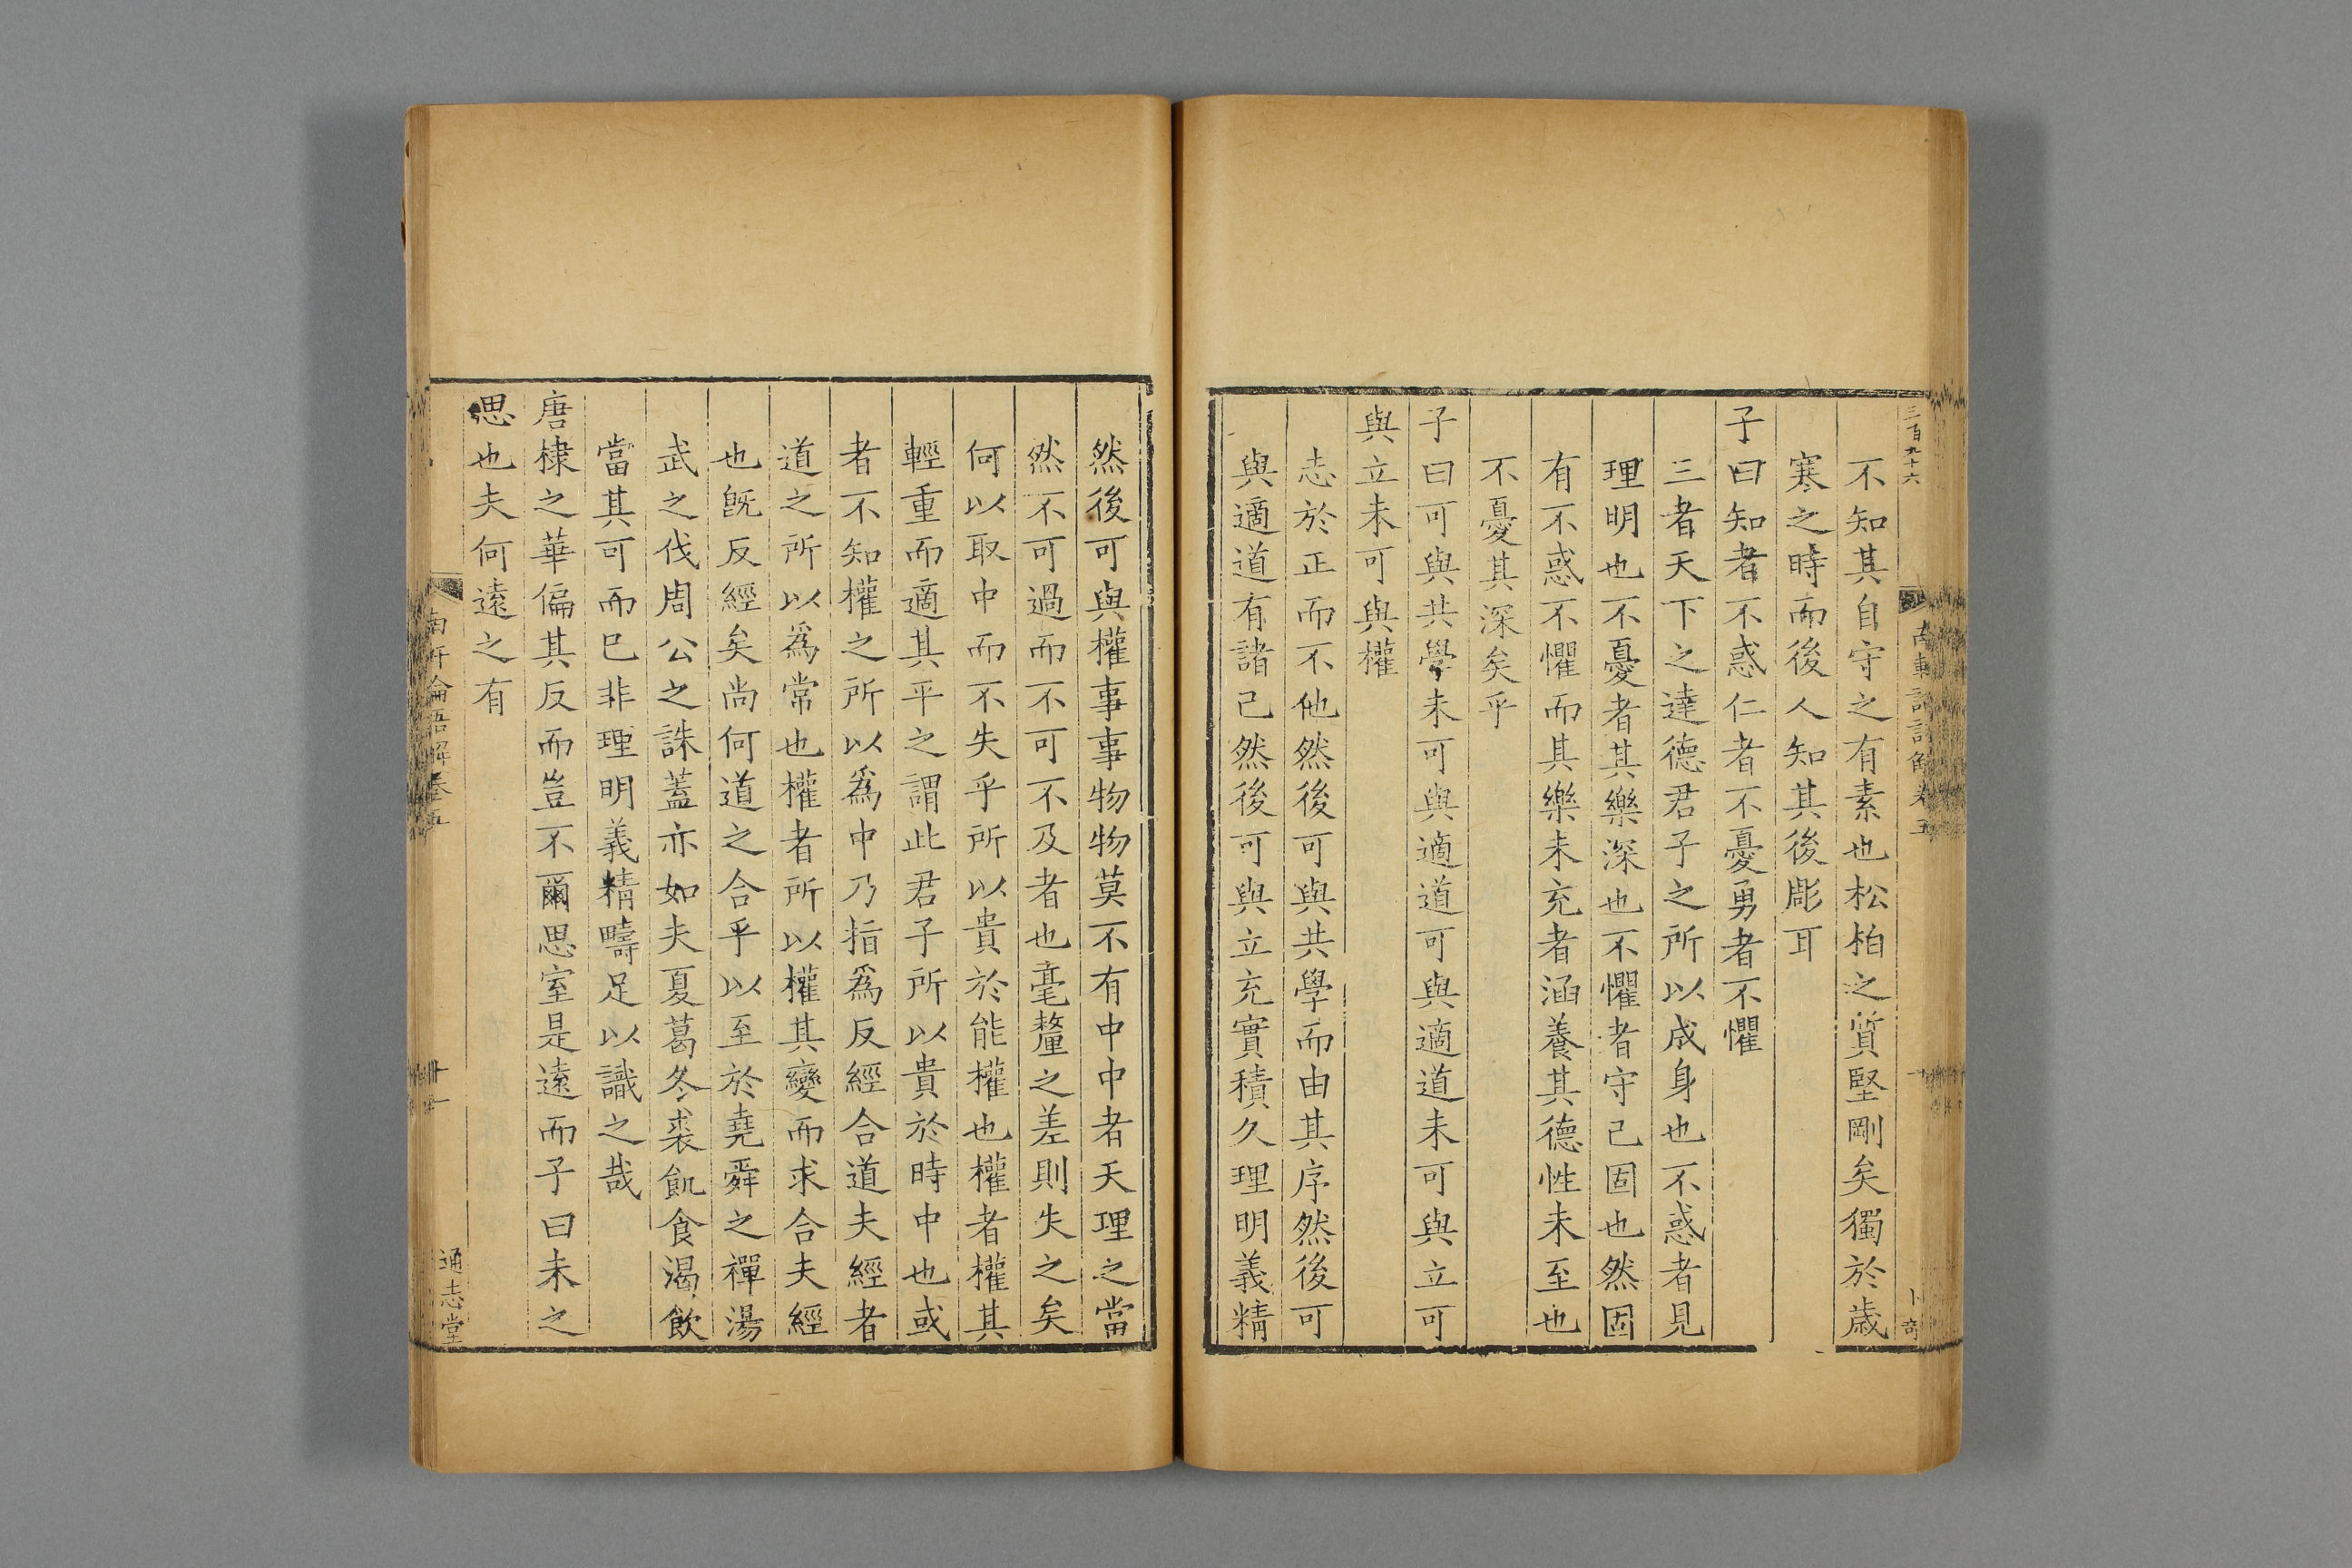 三百九十六
不知其自守之有素也松柏之質堅剛矣獨於歲
寒之時而後人知其後彫耳
子曰知者不惑仁者不憂勇者不懼
三者天下之達德君子之所以成身也不惑者見
理明也不憂者其樂深也不懼者守己固也然固
有不惑不懼而其樂未充者涵養其德性未至也
不憂其深矣乎
子曰可與共學未可與適道可與適道未可與立可
與立未可與權
志於正而不他然後可與共學而由其序然後可
與適道有諸己然後可與立充實積久理明義精
然後可與權事事物物莫不有中中者天理之當
然不可過而不可不及者也毫釐之差則失之矣
何以取中而不失乎所以貴於能權也權者權其
輕重而適其平之謂此君子所以貴於時中也或
者不知權之所以爲中乃指爲反經合道夫經者
道之所以爲常也權者所以權其變而求合夫經
也旣反經矣尚何道之合乎以至於堯舜之禪湯
武之伐周公之誅蓋亦如夫夏葛冬裘飢食渴飲
當其可而已非理明義精疇足以識之哉
唐棣之華偏其反而豈不爾思室是遠而子曰未之
思也夫何遠之有
南軒論語解卷五
通志堂